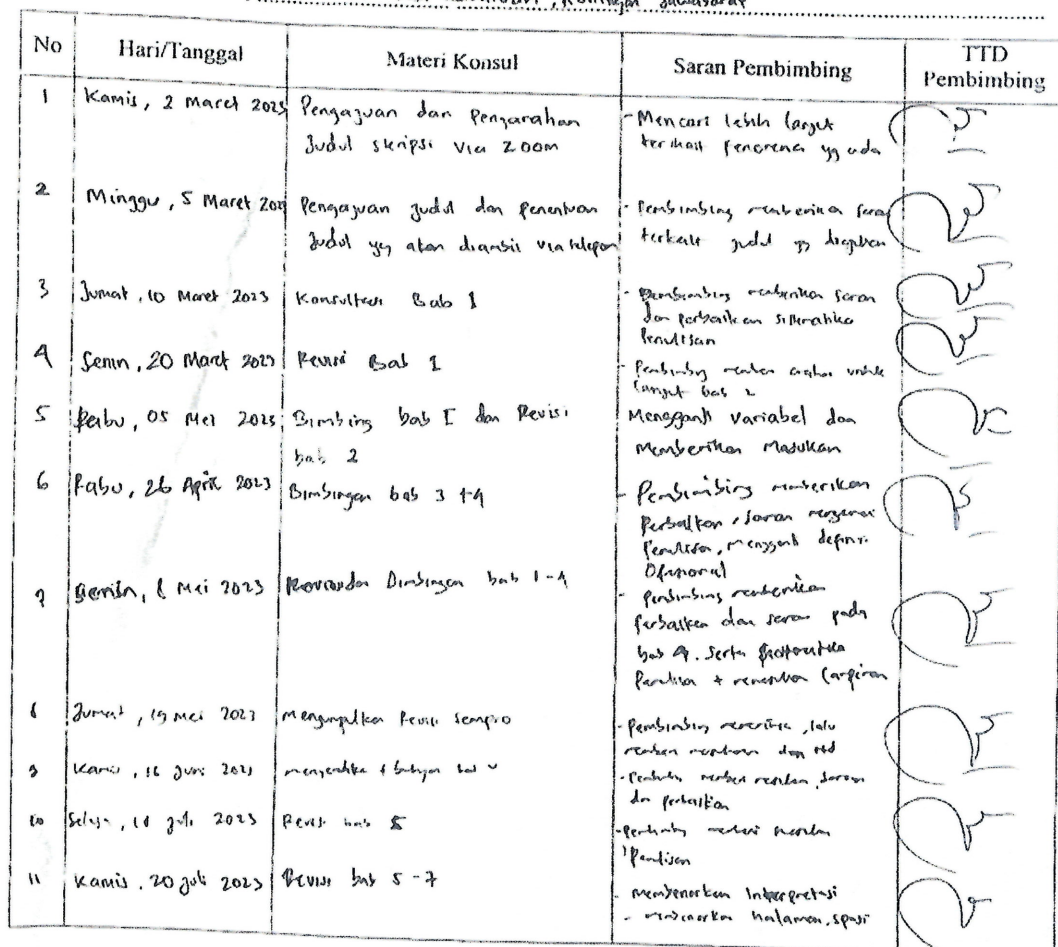 No Hari/Tanggal Materi Konsul Saran Pembimbing TTD Pembimbing
1 Kamis, 2 Maret 2023 Pengajuan dan Pengarahan
Judul skripsi via Zoom
- Mencari lebih lanjut
terkait fenomena yg ada
2 Minggu, 5 Maret Pengajuan Judul dan Penentuan
Judul yg akan diambil via telepon
- Pembimbing memberikan saran
terkait judul yg diajukan
3 Jumat, 10 Maret 2023 Konsultasi Bab 1
- Pembimbing memberikan saran
dan perbaikan sistematika
Penulisan
4 Senin, 20 Maret 2023 Revisi Bab 1
- Pembimbing untuk
lanjut bab 2
5 Rabu, 05 Mei 2023 Bimbing bab I dan Revisi
bab 2
Mengganti variabel dan
Memberikan Masukan
6 Rabu, 26 April 2023 Bimbingan bab 3 +4
- Pembimbing memberikan
Perbaikan, saran mengenai
Penulisan, mengganti definisi
Operasional
7 Senin, Mei 2023 Bimbingan bab 1-4
- Pembimbing memberikan
perbaikan dan saran pada
bab 4. Serta
Penulisan + lampiran
8 Jumat, 19 Mei 2023 Mengumpulkan Revisi Sempro
- Pembimbing menerima, lalu
dan ttd
9 Kamis, 16 Juni 2023
- Pembimbing saran
dan perbaikan
10 Selasa, Juli 2023 Revisi bab 5
- Pembimbing
Penulisan
11 Kamis, 20 Juli 2023 Revisi bab 5-7
- Membenarkan Interpretasi
- Membenarkan halaman, spasi